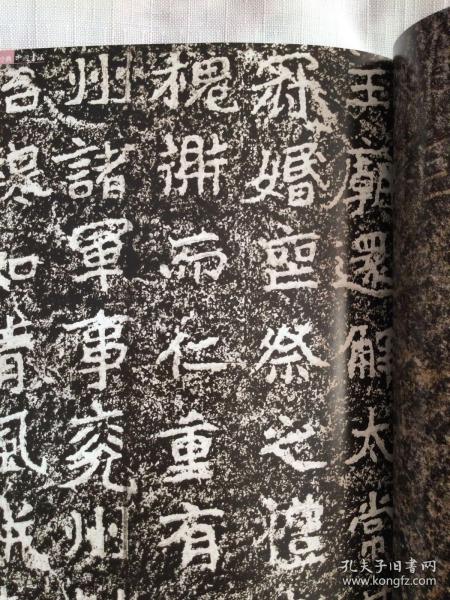 王廟還解太常
冠婚喪祭之禮
槐衡而仁重有
州諸軍事兗州
穆如清風
孔夫子旧书网
www.kongfz.com